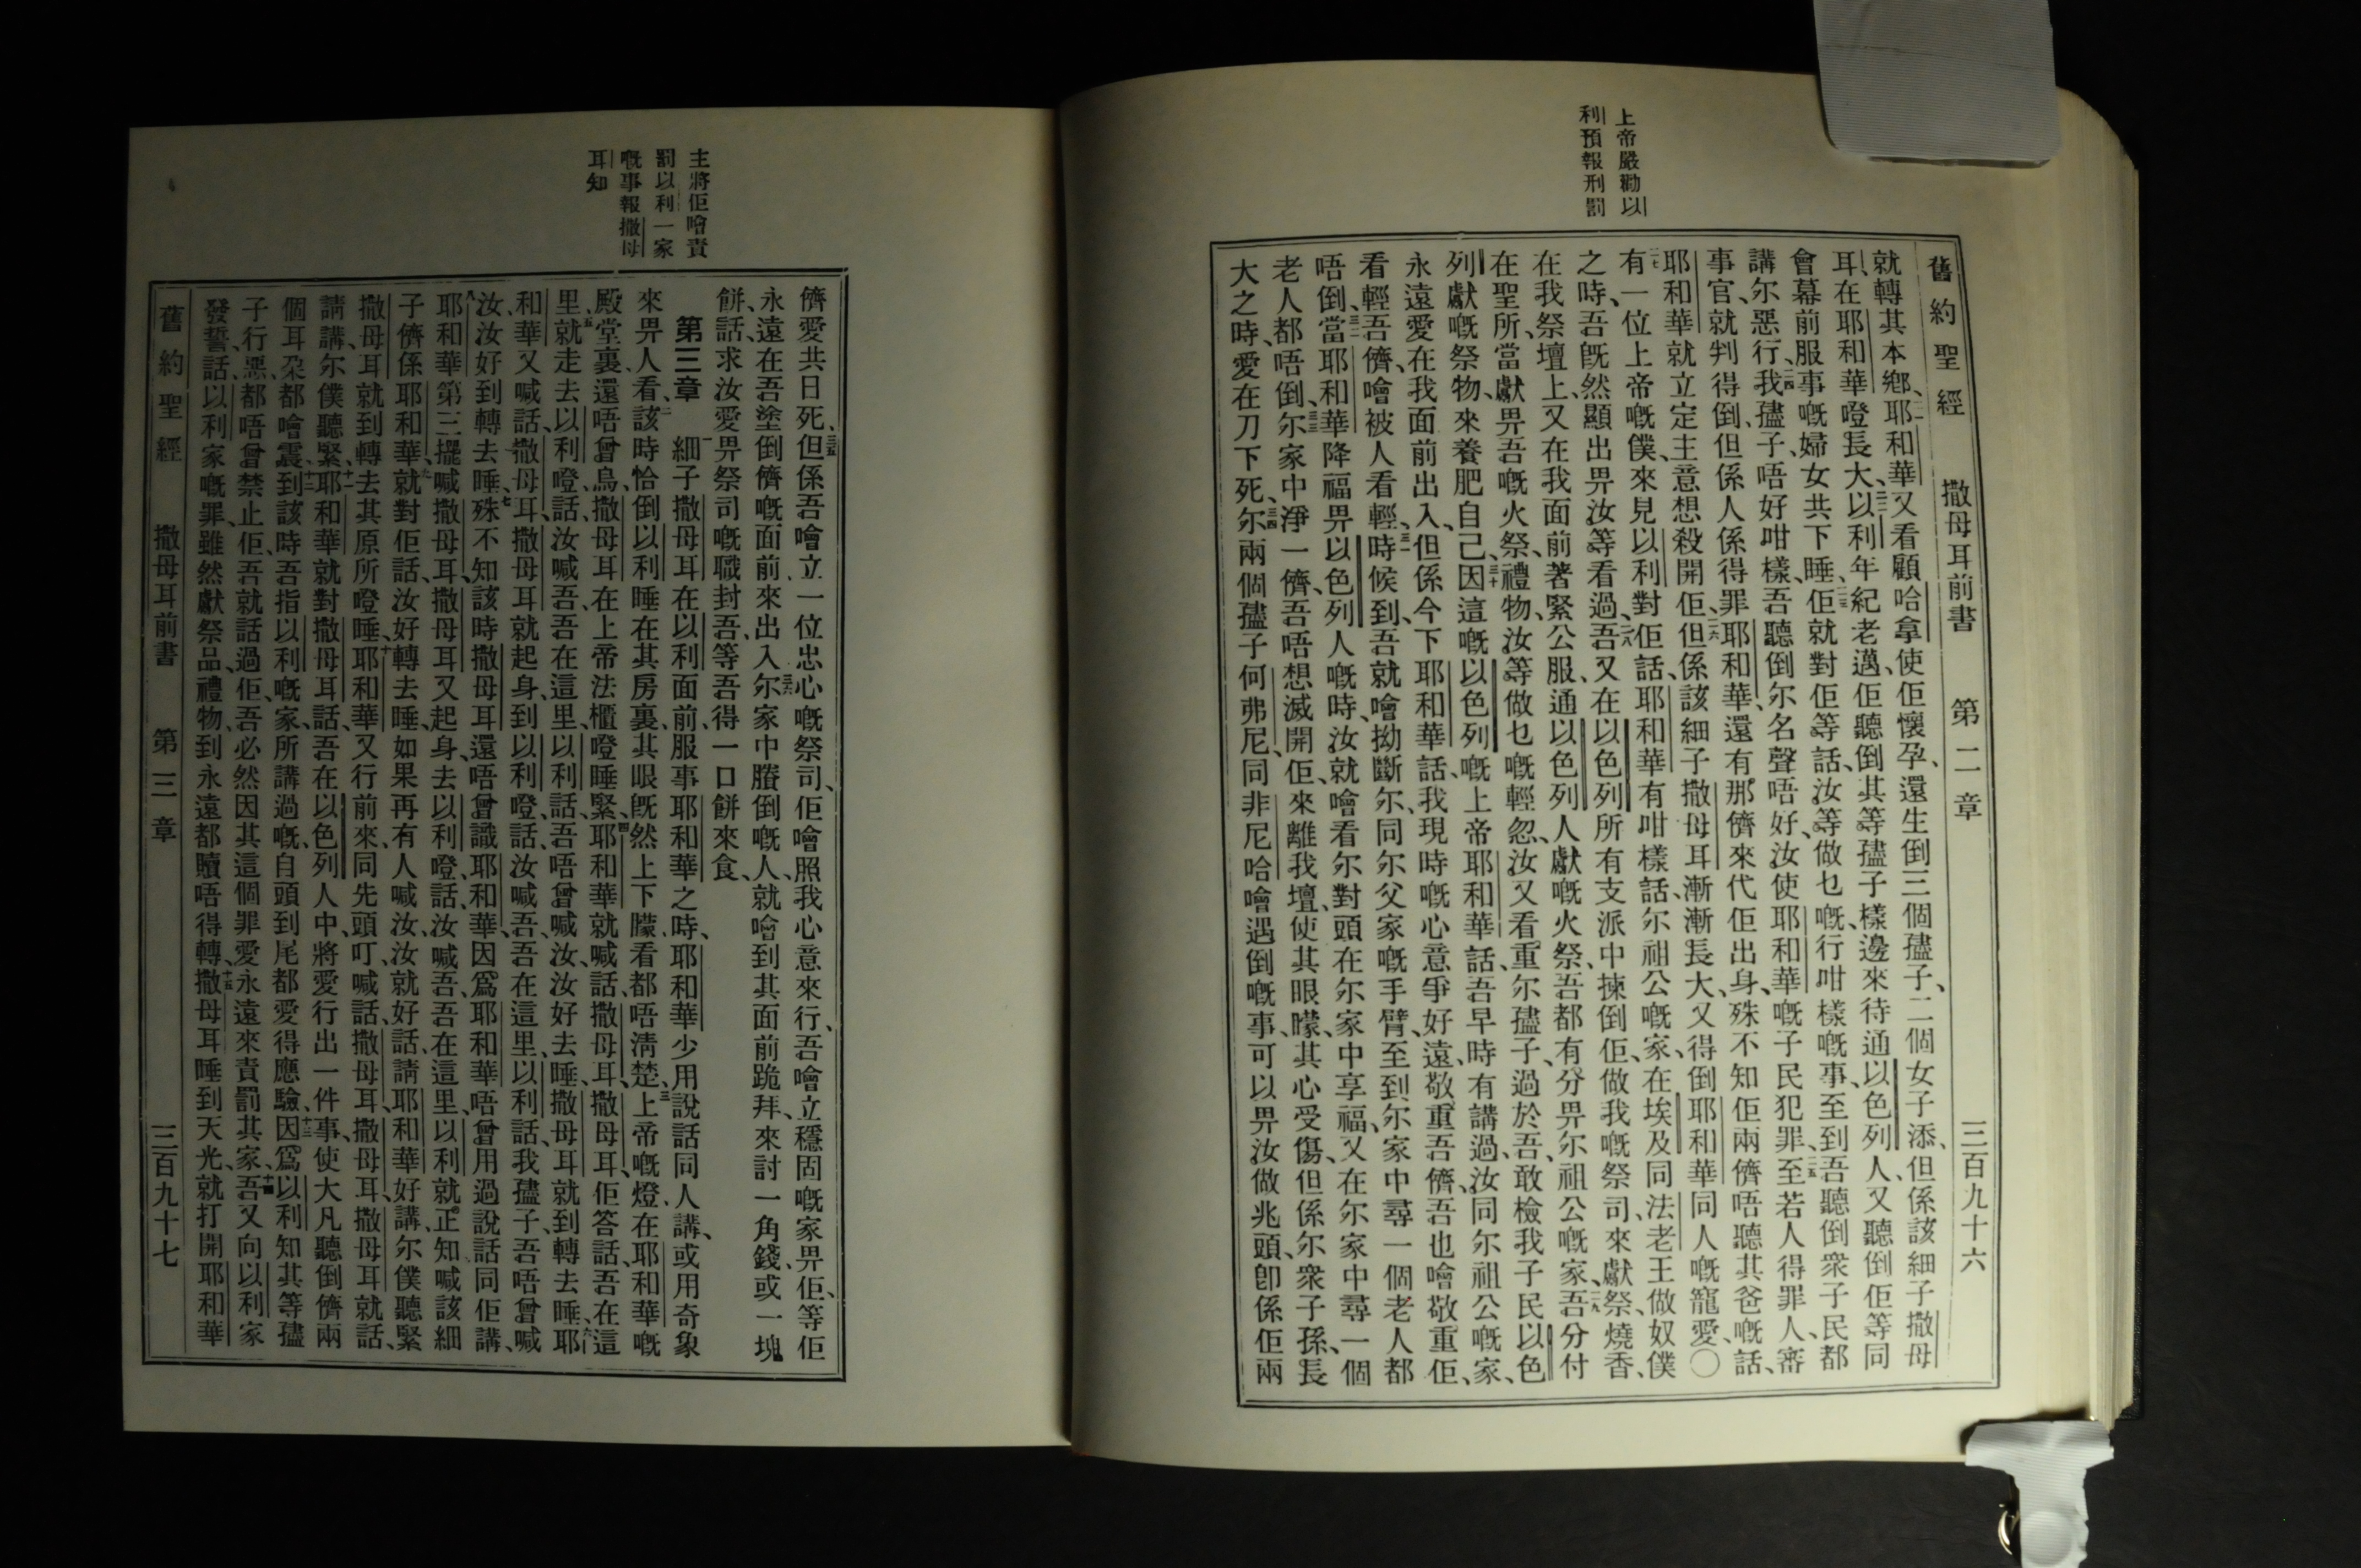 上帝嚴勸以
利預報刑罰
舊約聖經 撒母耳前書 第二章 三百九十六
就轉其本鄕、耶和華又看顧哈拿使佢懷孕、還生倒三個孻子、二個女子添、但係該細子撒母
耳、在耶和華嶝長大、以利年紀老邁、佢聽倒其等孻子樣邊來待通以色列人、又聽倒佢等同
會幕前服事嘅婦女共下睡、佢就對佢等話、汝等做乜嘅行咁樣嘅事、至到吾聽倒衆子民都
講尔惡行、我孻子、唔好咁樣、吾聽倒尔名聲唔好、汝使耶和華嘅子民犯罪、至若人得罪人、審
事官、就判得倒、但係人係得罪耶和華、還有那儕來代佢出身、殊不知佢兩儕唔聽其爸嘅話、
耶和華就立定主意想殺開佢、但係該細子撒母耳漸漸長大、又得倒耶和華同人嘅寵愛、〇
有一位上帝嘅僕、來見以利對佢話、耶和華有咁樣話、尔祖公嘅家、在埃及同法老王做奴僕
之時、吾旣然顯出畀汝等看過、吾又在以色列所有支派中揀倒佢、做我嘅祭司、來獻祭、燒香、
在我祭壇上、又在我面前著緊公服、通以色列人獻嘅火祭、吾都有分畀尔祖公嘅家、吾分付
在聖所、當獻畀吾嘅火祭、禮物、汝等做乜嘅輕忽、汝又看重尔孻子、過於吾、敢檢我子民以色
列獻嘅祭物、來養肥自己、因這嘅以色列嘅上帝耶和華話、吾早時有講過、汝同尔祖公嘅家、
永遠愛在我面前出入、但係今下耶和華話、我現時嘅心意爭好遠、敬重吾儕、吾也噲敬重佢、
看輕吾儕、噲被人看輕、時候到、吾就噲拗斷尔、同尔父家嘅手臂、至到尔家中尋一個老人都
唔倒、當耶和華降福畀以色列人嘅時、汝就噲看尔對頭在尔家中享福、又在尔家中尋一個
老人都唔倒、尔家中淨一儕、吾唔想滅開佢、來離我壇、使其眼曚、其心受傷、但係尔衆子孫、長
大之時、愛在刀下死、尔兩個孻子何弗尼、同非尼哈噲遇倒嘅事、可以畀汝做兆頭、卽係佢兩
主將佢噲責
罰以利一家
嘅事報撒母
耳知
儕愛共日死、但係吾噲立一位忠心嘅祭司、佢噲照我心意來行、吾噲立穩固嘅家畀佢、等佢
永遠在吾塗倒儕嘅面前來出入、尔家中賸倒嘅人、就噲到其面前跪拜、來討一角錢、或一塊
餅、話、求汝愛畀祭司嘅職封吾、等吾得一口餅來食、
第三章 細子撒母耳在以利面前服事耶和華之時、耶和華少用說話同人講、或用奇象
來畀人看、該時恰倒以利睡在其房裏、其眼旣然上下矇、看都唔淸楚、上帝嘅燈在耶和華嘅
殿堂裏、還唔曾烏、撒母耳在上帝法櫃嶝睡緊、耶和華就喊話、撒母耳、撒母耳、佢答話、吾在這
里、就走去以利嶝、話、汝喊吾、吾在這里、以利話、吾唔曾喊汝、汝好去睡、撒母耳就到轉去睡、耶
和華又喊話、撒母耳、撒母耳就起身、到以利嶝、話、汝喊吾、吾在這里、以利話、我孻子、吾唔曾喊
汝、汝好到轉去睡、殊不知該時撒母耳還唔曾識耶和華、因爲耶和華唔曾用過說話同佢講、
耶和華第三擺喊撒母耳、撒母耳又起身、去以利嶝、話、汝喊吾、吾在這里、以利就正知喊該細
子儕係耶和華、就對佢話、汝好轉去睡、如果再有人喊汝、汝就好話、請耶和華好講、尔僕聽緊
撒母耳就到轉去其原所嶝睡、耶和華又行前來、同先頭叮喊話、撒母耳、撒母耳、撒母耳就話、
請講、尔僕聽緊、耶和華就對撒母耳話、吾在以色列人中、將愛行出一件事、使大凡聽倒儕兩
個耳朶都噲震、到該時吾指以利嘅家所講過嘅、自頭到尾都愛得應驗、因爲以利知其等孻
子行惡、都唔曾禁止佢、吾就話過佢、吾必然因其這個罪愛永遠來責罰其家、吾又向以利家
發誓、話、以利家嘅罪、雖然獻祭品、禮物、到永遠都贖唔得轉、撒母耳睡到天光、就打開耶和華
舊約聖經 撒母耳前書 第三章 三百九十七